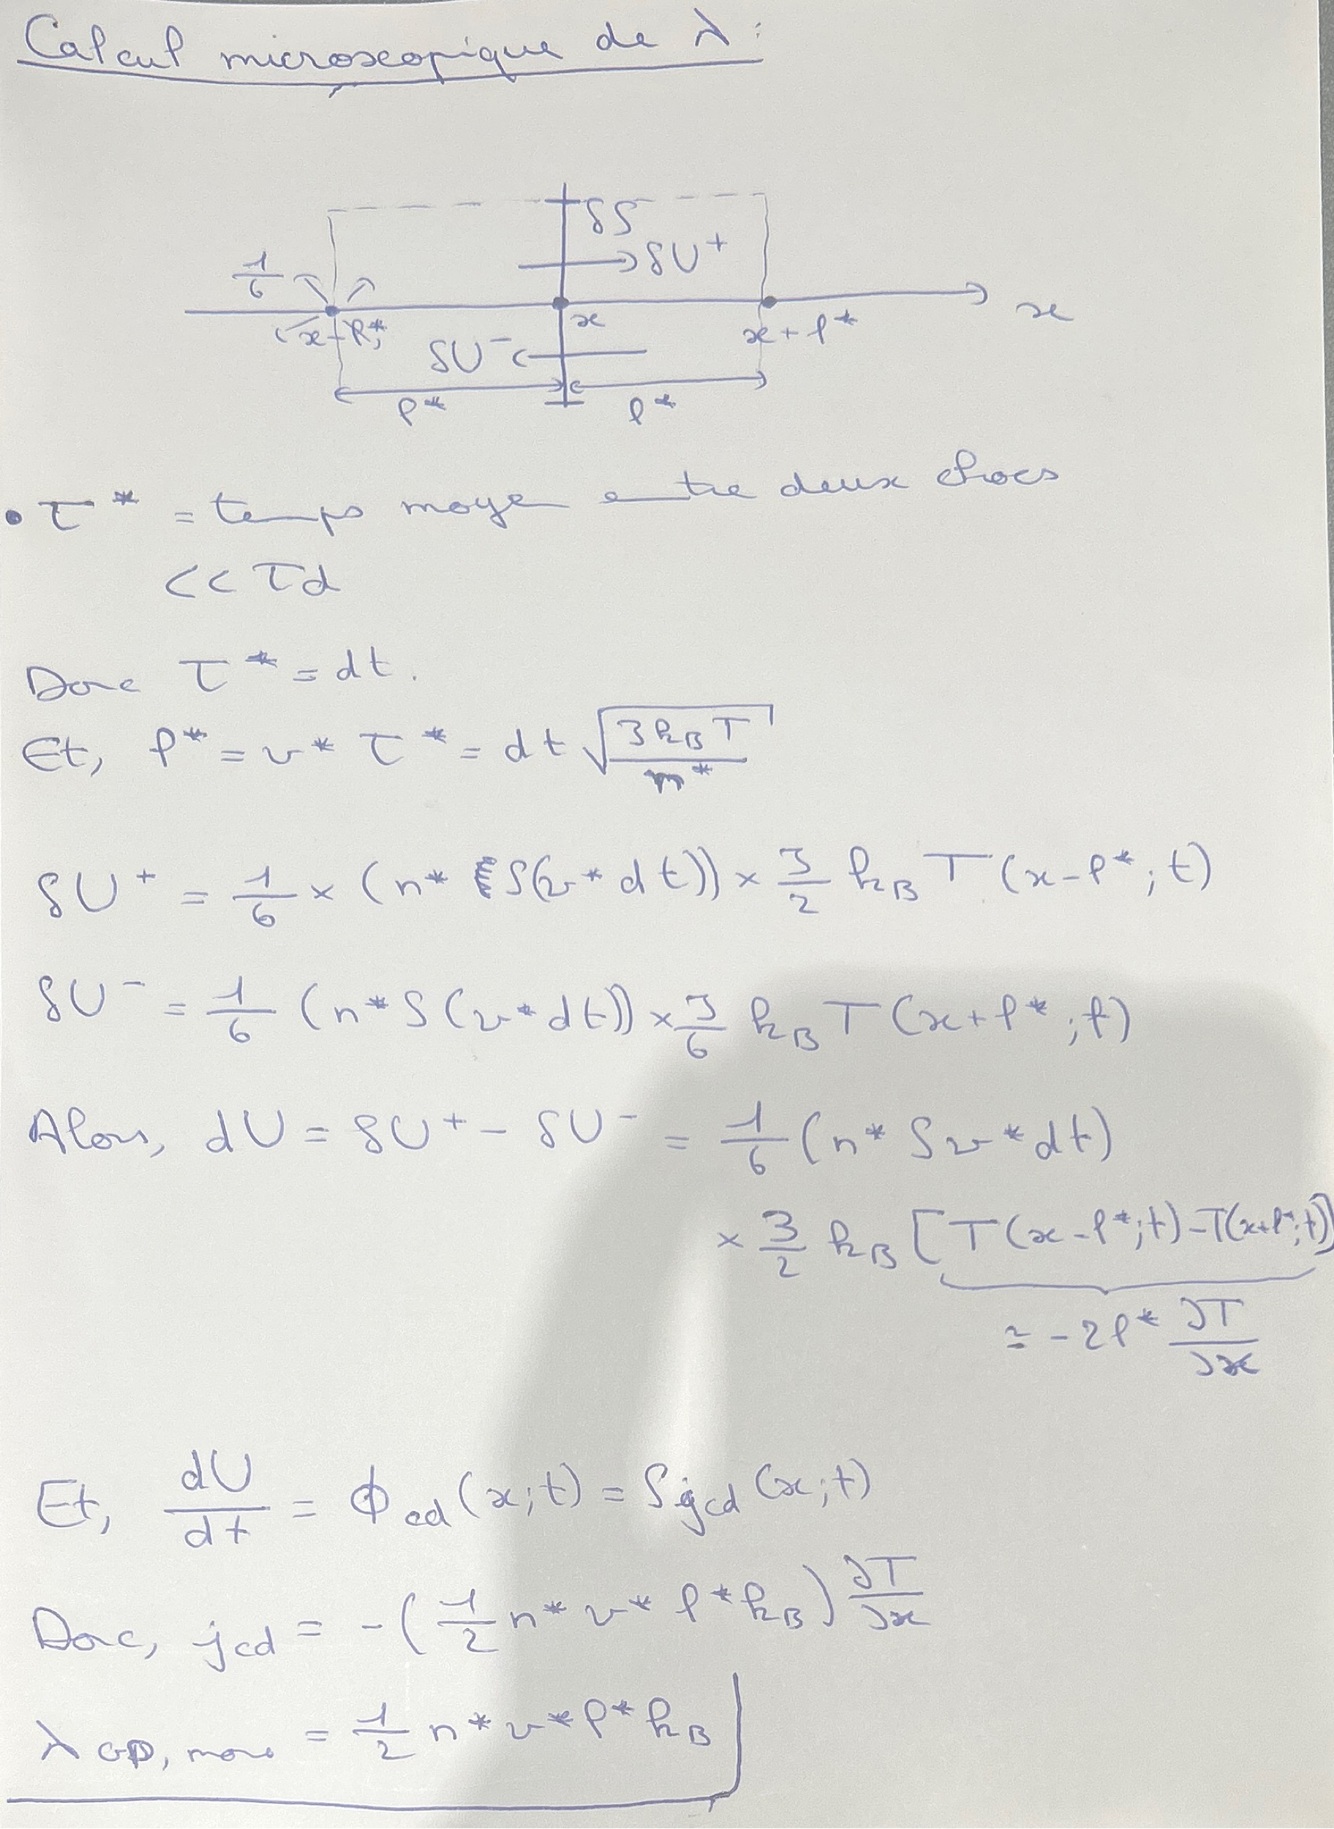 Calcul microscopique de λ :
δS
1/6
δU⁺
x
x-l*
x
x+l*
δU⁻
l*
l*
• τ* = temps moyen entre deux chocs
<< τd
Donc τ* = dt.
Et, l* = v* τ* = dt √(3k_B T / m*)
δU⁺ = 1/6 × (n* S(v* dt)) × 3/2 k_B T(x-l*; t)
δU⁻ = 1/6 (n* S(v* dt)) × 3/6 k_B T(x+l*; t)
Alors, dU = δU⁺ - δU⁻ = 1/6 (n* S v* dt)
× 3/2 k_B [T(x-l*; t) - T(x+l*; t)]
≃ -2l* ∂T/∂x
Et, dU/dt = ϕcd(x; t) = S jcd(x; t)
Donc, jcd = -(1/2 n* v* l* k_B) ∂T/∂x
λ GP, mono = 1/2 n* v* l* k_B